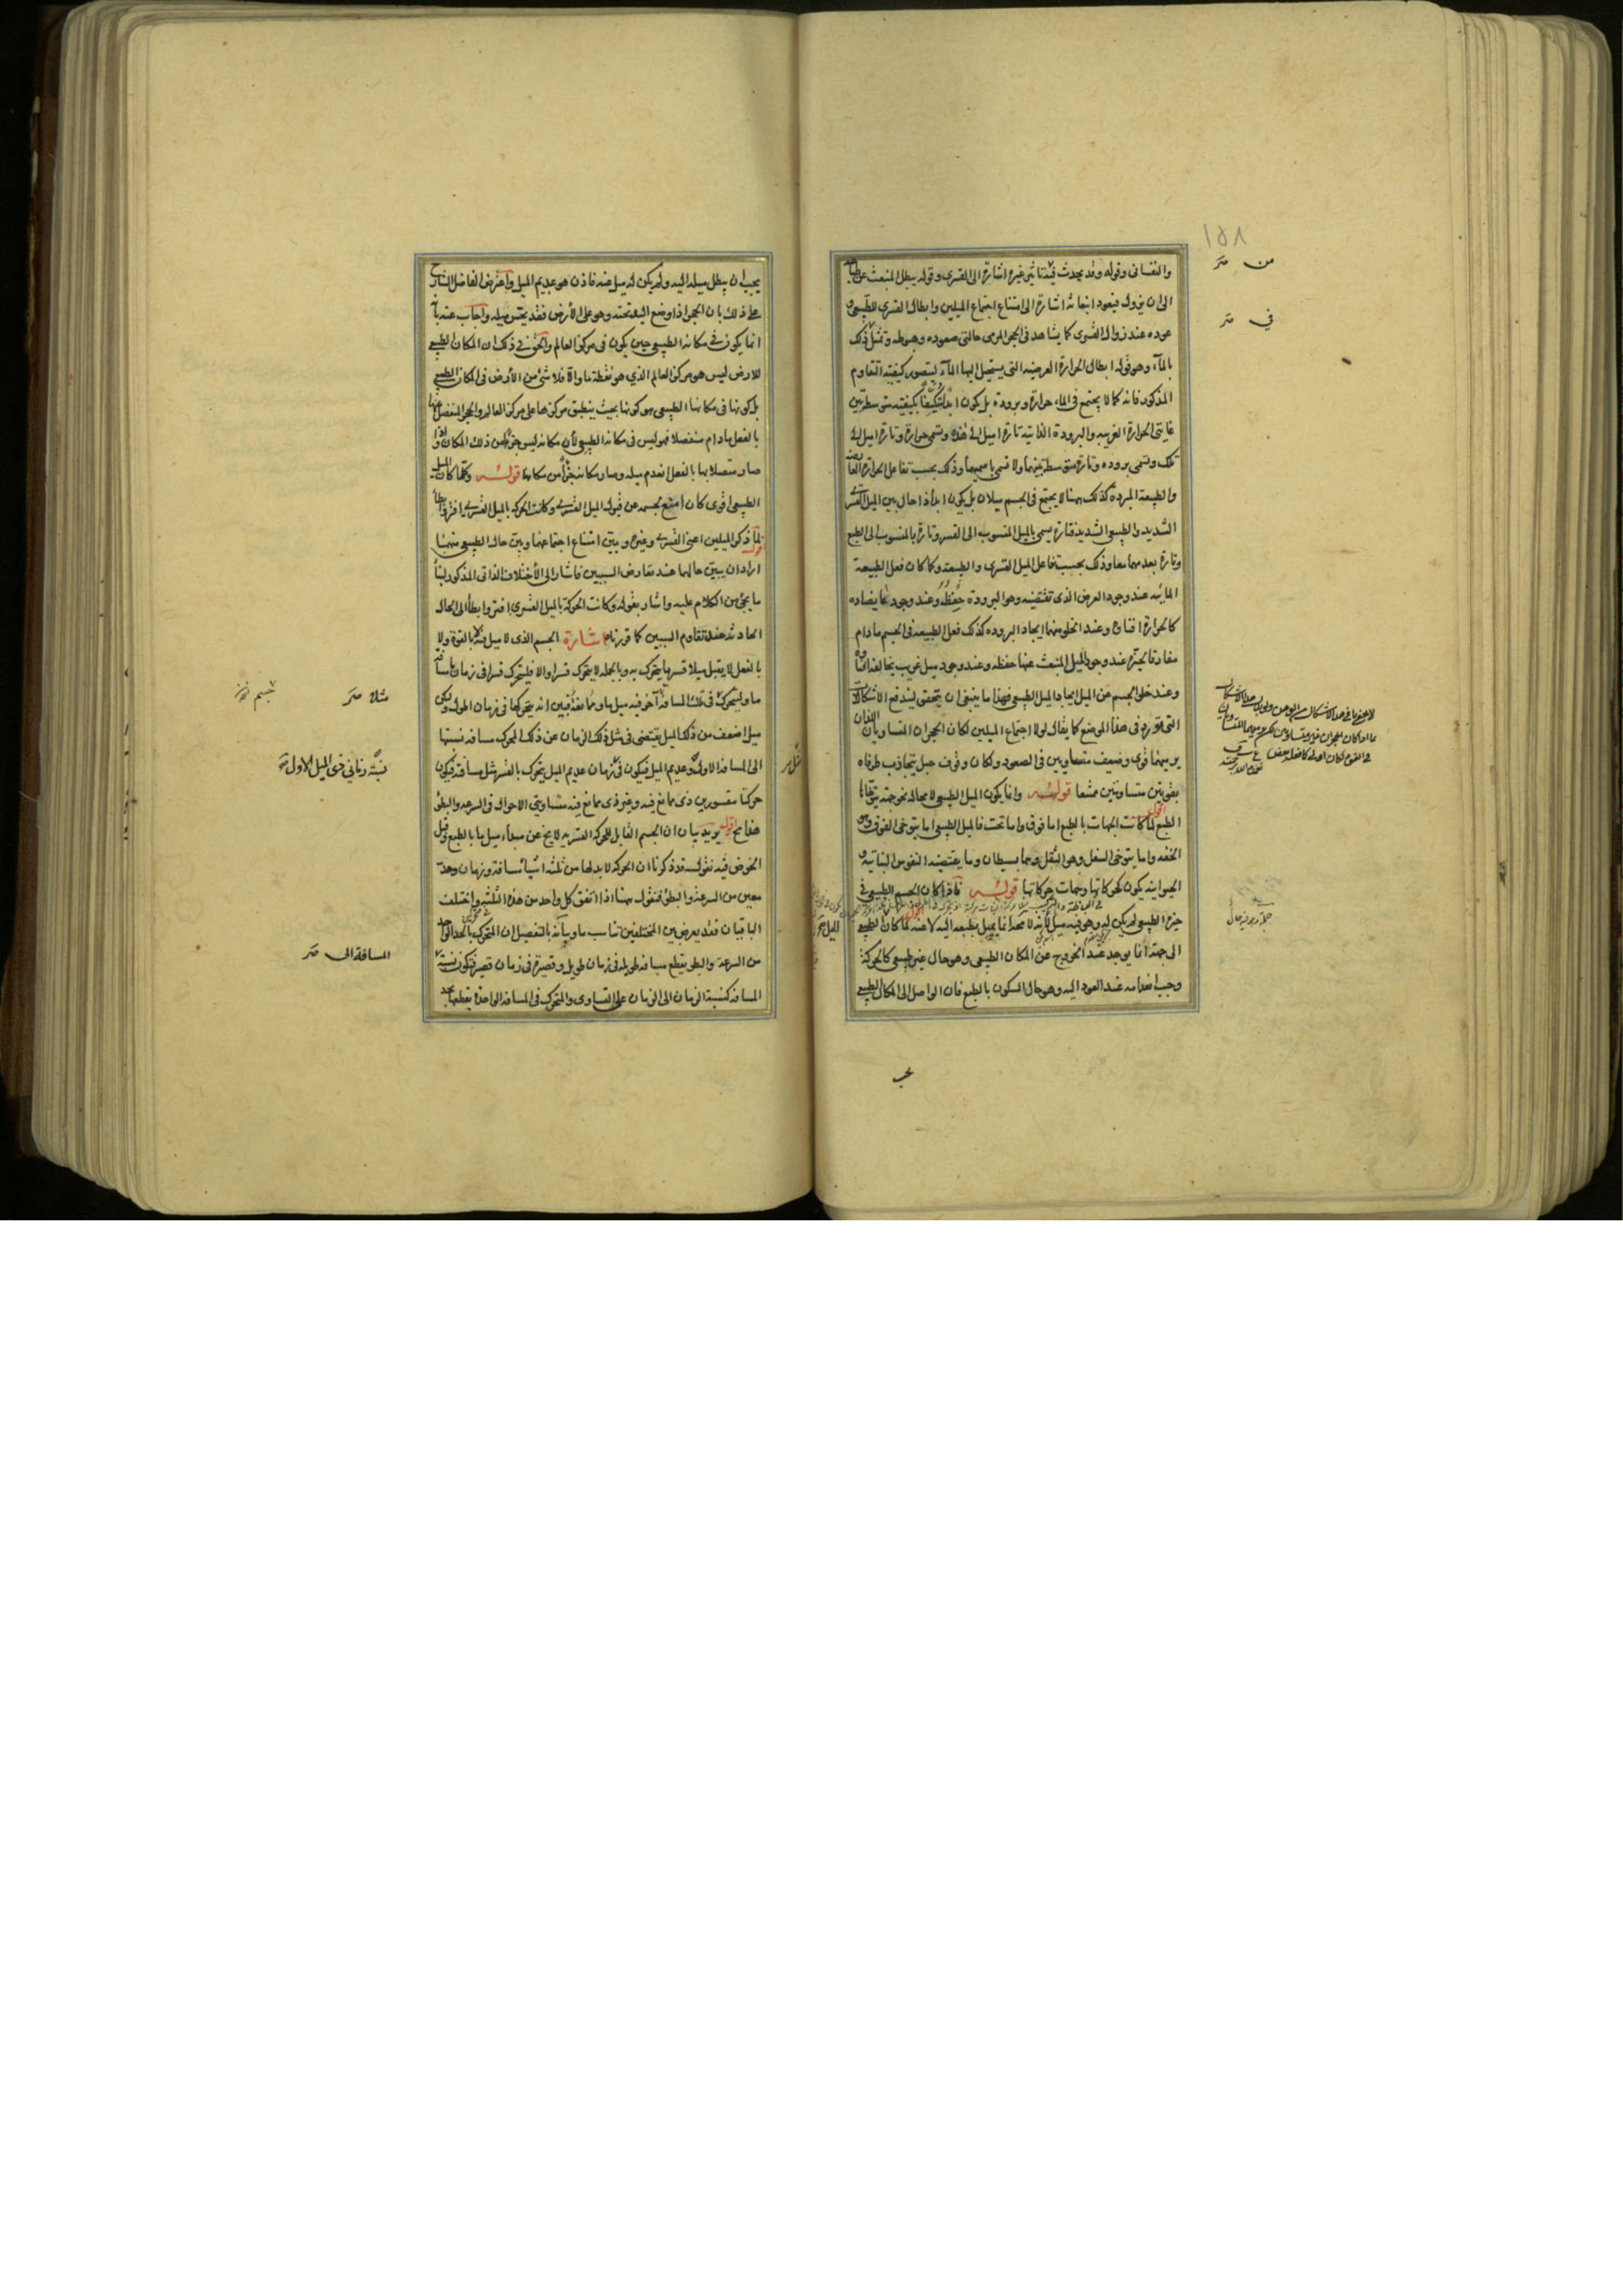 ١٥٨
من صح
في صح
والنفسانى وقوله وقد يحدث فيه تاثير غيره اشارة الى القسرى وقوله يبطل المنبعث عن طباعه
الى ان يزول فيعود انبعاثه اشارة الى امتناع اجتماع الميلين وابطال القسرى للطبيعى و
عوده عند زوال القسرى كما يشاهد فى الحجر المرمى حالتى صعوده وهبوطه وتمثل ذلك
بالمآء وهو قوله ابطال الحرارة العرضية التى يستحيل اليها المآء ليتصور كيفية التقاوم
المذكور فانه كما لا يجتمع فى الماء حرارة وبرودة بل يكون ابدا متكيفا بكيفية متوسطة بين
غايتى الحرارة الغريبة والبرودة الذاتية تارة اميل الى هذه وتسمى حرارة وتارة اميل الى
تلك وتسمى برودة وتارة متوسطة بينهما ولا تسمى باسميهما وذلك بحسب تفاعل الحرارة العارضة
والطبيعة المبردة كذلك ههنا لا يجتمع فى الجسم ميلان بل يكون ابدا ذا حال بين الميل القسرى
الشديد والطبيعى الشديد فتارة يسمى بالميل المنسوب الى القسر وتارة بالمنسوب الى الطبع
وتارة بعدمهما معا وذلك بحسب تفاعل الميل القسرى والطبيعة وكما كان فعل الطبيعة
المائية عند وجود العرض الذى تقتضيه وهو البرودة حفظه وعند وجود ما يضاده
كالحرارة افناؤه وعند الخلو منهما ايجاد البروده كذلك فعل الطبيعة فى الجسم مادام
مفارقا لحيزه عند وجود الميل المنبعث عنها حفظه وعند وجود ميل غريب يخالفه افناؤه
وعند خلو الجسم عن الميل ايجاد الميل الطبيعى فهذا ما ينبغى ان يتحقق ليندفع الاشكالات
التى تورد فى هذا الموضع كما يقال لولا اجتماع الميلين لكان الحجران المتساويان اللذان
يرميهما قوى وضعيف متساويين فى الصعود ولكان وقوف حبل يتجاذب طرفاه
بقوتين متساويتين ممتنعا قوله وانما يكون الميل الطبيعى لا محالة نحو جهة يتوخاها
الطبع اقول لما كانت الجهات بالطبع اما فوق واما تحت فالميل الطبيعى اما يتوخى الفوق وهو
الخفة واما يتوخى السفل وهو الثقل وهما بسيطان وما يقتضيه النفوس النباتية و
الحيوانية يكون لحركاتها وجهات حركاتها قوله فاذا كان الجسم الطبيعى فى
حيزه الطبيعى لم يكن له وهو فيه ميل لأنه لا محالة انما يميل بطبعه اليه لا عنه اقول لما كان الميل الطبيعى
الى جهة انما يوجد عند الخروج عن المكان الطبيعى وهو حال غير طبيعى كالحركة
وجب انعدامه عند العود اليه وهو حال السكون بالطبع فان الواصل الى المكان الطبيعى
يجب
يجب ان يبطل ميله اليه ولم يكن له ميل عنه فاذن هو عديم الميل واعترض الفاضل الشارح
على ذلك بان الحجر اذا وضع اليد تحته وهو على الأرض فقد يحس ميله واجاب عنه بأنه
انما يكون فى مكانه الطبيعى حين يكون فى مركز العالم والحق فى ذلك ان المكان الطبيعى
للارض ليس هو مركز العالم الذي هو نقطة ما والا فلا شئ من الأرض فى المكان الطبيعى
بل كونها فى مكانها الطبيعى هو كونها بحيث ينطبق مركزها على مركز العالم والحجر المنفصل عنها
بالفعل مادام منفصلا فهو ليس فى مكانه الطبيعى لأن مكانه ليس جزءا من ذلك المكان واذا
صار متصلا بها بالفعل انعدم ميله وصار مكانه جزءا من مكانها قوله وكلما كان الميل
الطبيعى اقوى كان امنع لجسمه عن قبول الميل القسرى وكانت الحركة بالميل القسرى افتر وابطأ
اقول لما ذكر الميلين اعنى القسرى وغيره وبين امتناع اجتماعهما وبين حال الطبيعى منهما
اراد ان يبين حالهما عند تعارض السببين فاشار الى الأختلاف الذاتى المذكور
ما يجئ من الكلام عليه واشار بقوله وكانت الحركة بالميل القسرى افتر وابطأ الى الحال
الحادثة عند تقاوم السببين كما قررناه اشارة الجسم الذى لا ميل فيه لا بالقوة ولا
بالفعل لا يقبل ميلا قسريا يتحرك به وبالجملة لا يتحرك قسرا والا فليتحرك قسرا فى زمان ما مسافة
ما وليتحرك فى تلك المسافة آخر فيه ميل ما ومانعة فبين انه يتحركها فى زمان اطول وليكن
ميل اضعف من ذلك الميل يقتضى فى مثل ذلك الزمان عن ذلك المحرك مسافة نسبتها
الى المسافة الاولى وعديم الميل فيكون فى زمان عديم الميل يتحرك بالقسر مثل مسافته فيكون
حركتا مقسورين ذى ممانع فيه وغير ذى ممانع فيه متساويتى الاحوال فى السرعة والبطؤ
هذا مح اقول يريد بيان ان الجسم القابل للحركة القسرية لا يخ عن مبدأ ميل ما بالطبع وقبل
الخوض فيه نقول قد ذكرنا ان الحركة لا بد لها من ثلثة اشيا مسافة وزمان وحد
معين من السرعة والبطؤ فنقول ههنا اذا اتفق كل واحد من هذه الثلثة واختلفت
الباقيان فقد يعرض بين المختلفين تناسب ما وبيانه بالتفصيل ان المتحرك بالحد الواحد
من السرعة والبطو يقطع مسافة طويلة فى زمان طويل وقصيرة فى زمان قصير فيكون نسبة
المسافة كنسبة الزمان الى الزمان على التساوى والمتحرك فى المسافة الواحدة يقطعها بحد
مثلا صح
المسافة الى صح